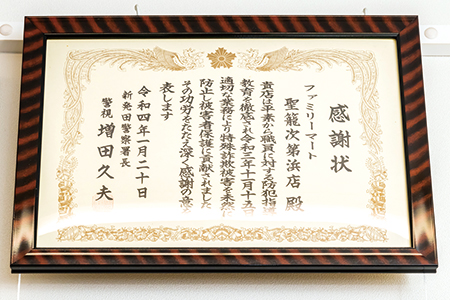 感謝状
ファミリーマート
聖籠次第浜店 殿
貴店は平素から職員に対する防犯指
教育を徹底され令和三年十一月十五
適切な業務により特殊詐欺被害を未然
防止し被害者保護に貢献されました
その功労をたたえ深く感謝の意を
表します
令和四年一月二十日
新発田警察署長
警視 増田久夫